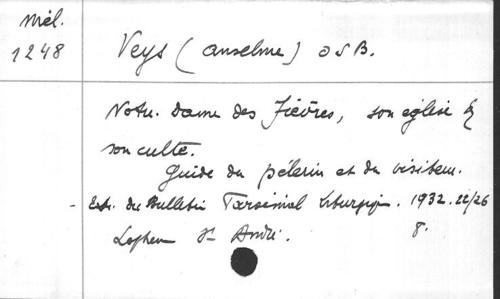 Mél.
1248
Veys (Anselme) OSB.
Notre. Dame des Fièvres, son église &
son culte.
Guide du pélerin et du visiteur.
- Extr. du Bulletin Paroissial Liturgiq. 1932. 22/26
Lophem St André. 8.